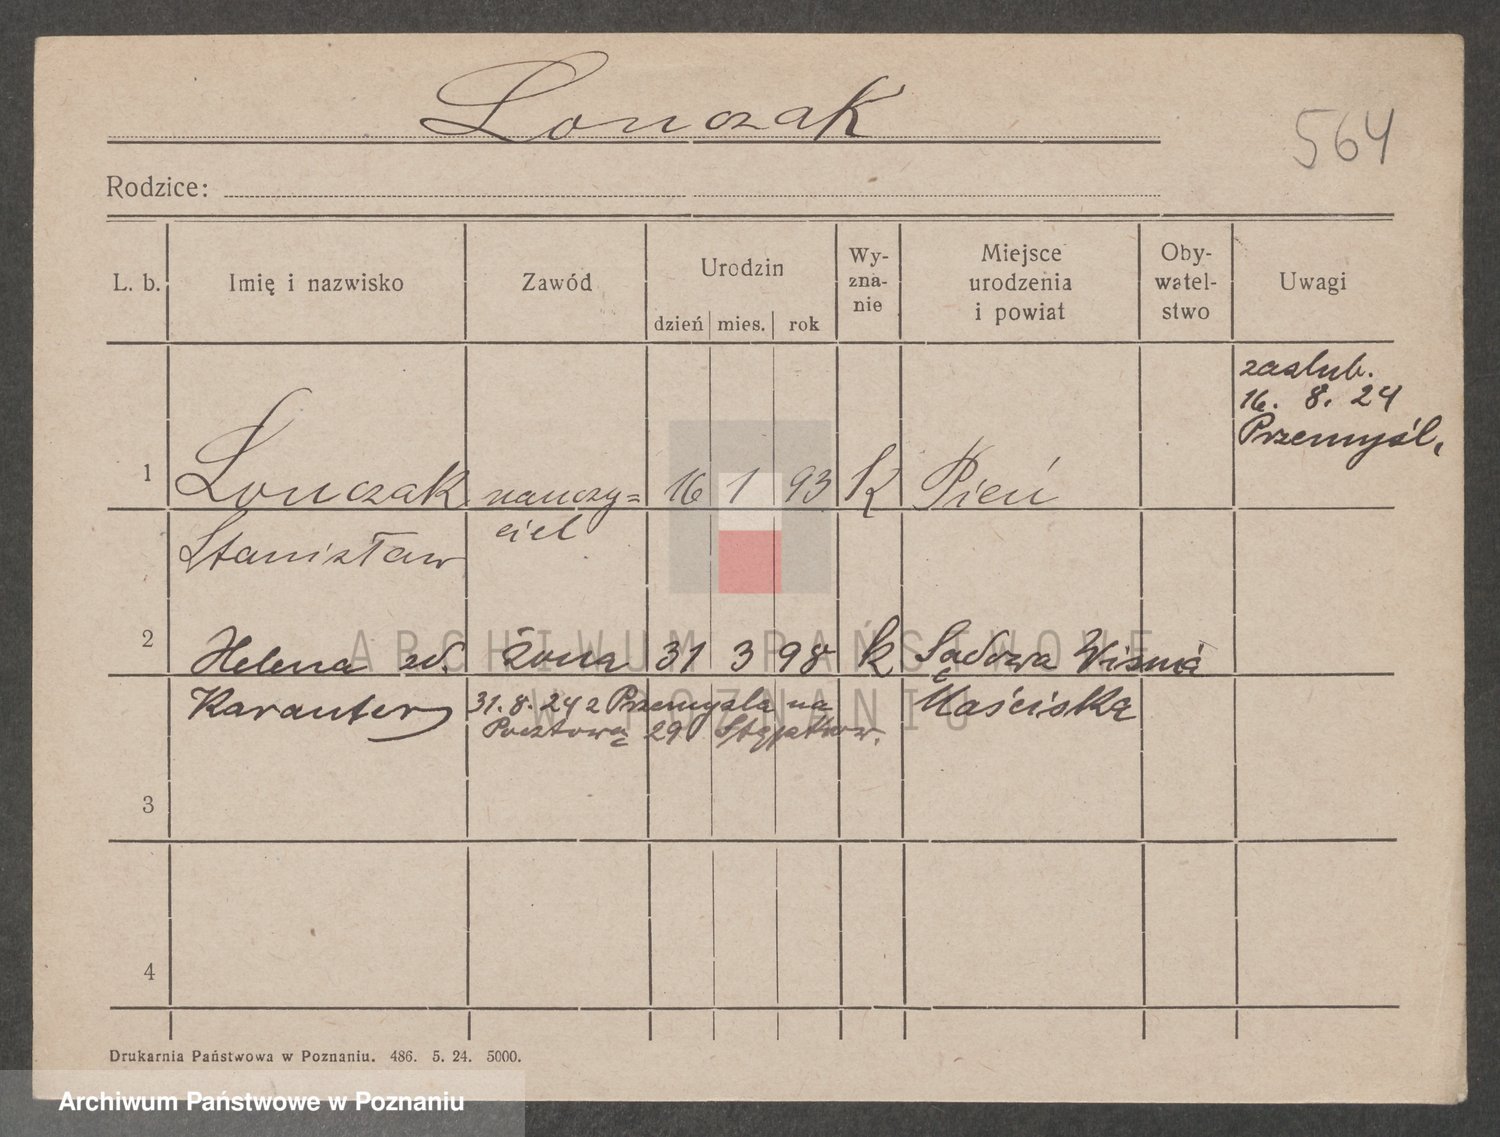 Lonczak
564
Rodzice:
L. b. Imię i nazwisko Zawód Urodzin Wy-zna-nie Miejsce urodzenia i powiat Oby-watel-stwo Uwagi
dzień mies. rok
zaślub.
16. 8. 24
Przemyśl,
1 Lonczak nauczy= 16 1 93 k Pień
Stanisław ciel
2 Helena zd. żona 31 3 98 k Sądowa Wisznia
Karanter 31.8.24 z Przemyśla na Mościska
Pocztową 29
3
4
ARCHIWUM PAŃSTWOWE
W POZNANIU
Drukarnia Państwowa w Poznaniu. 486. 5. 24. 5000.
Archiwum Państwowe w Poznaniu